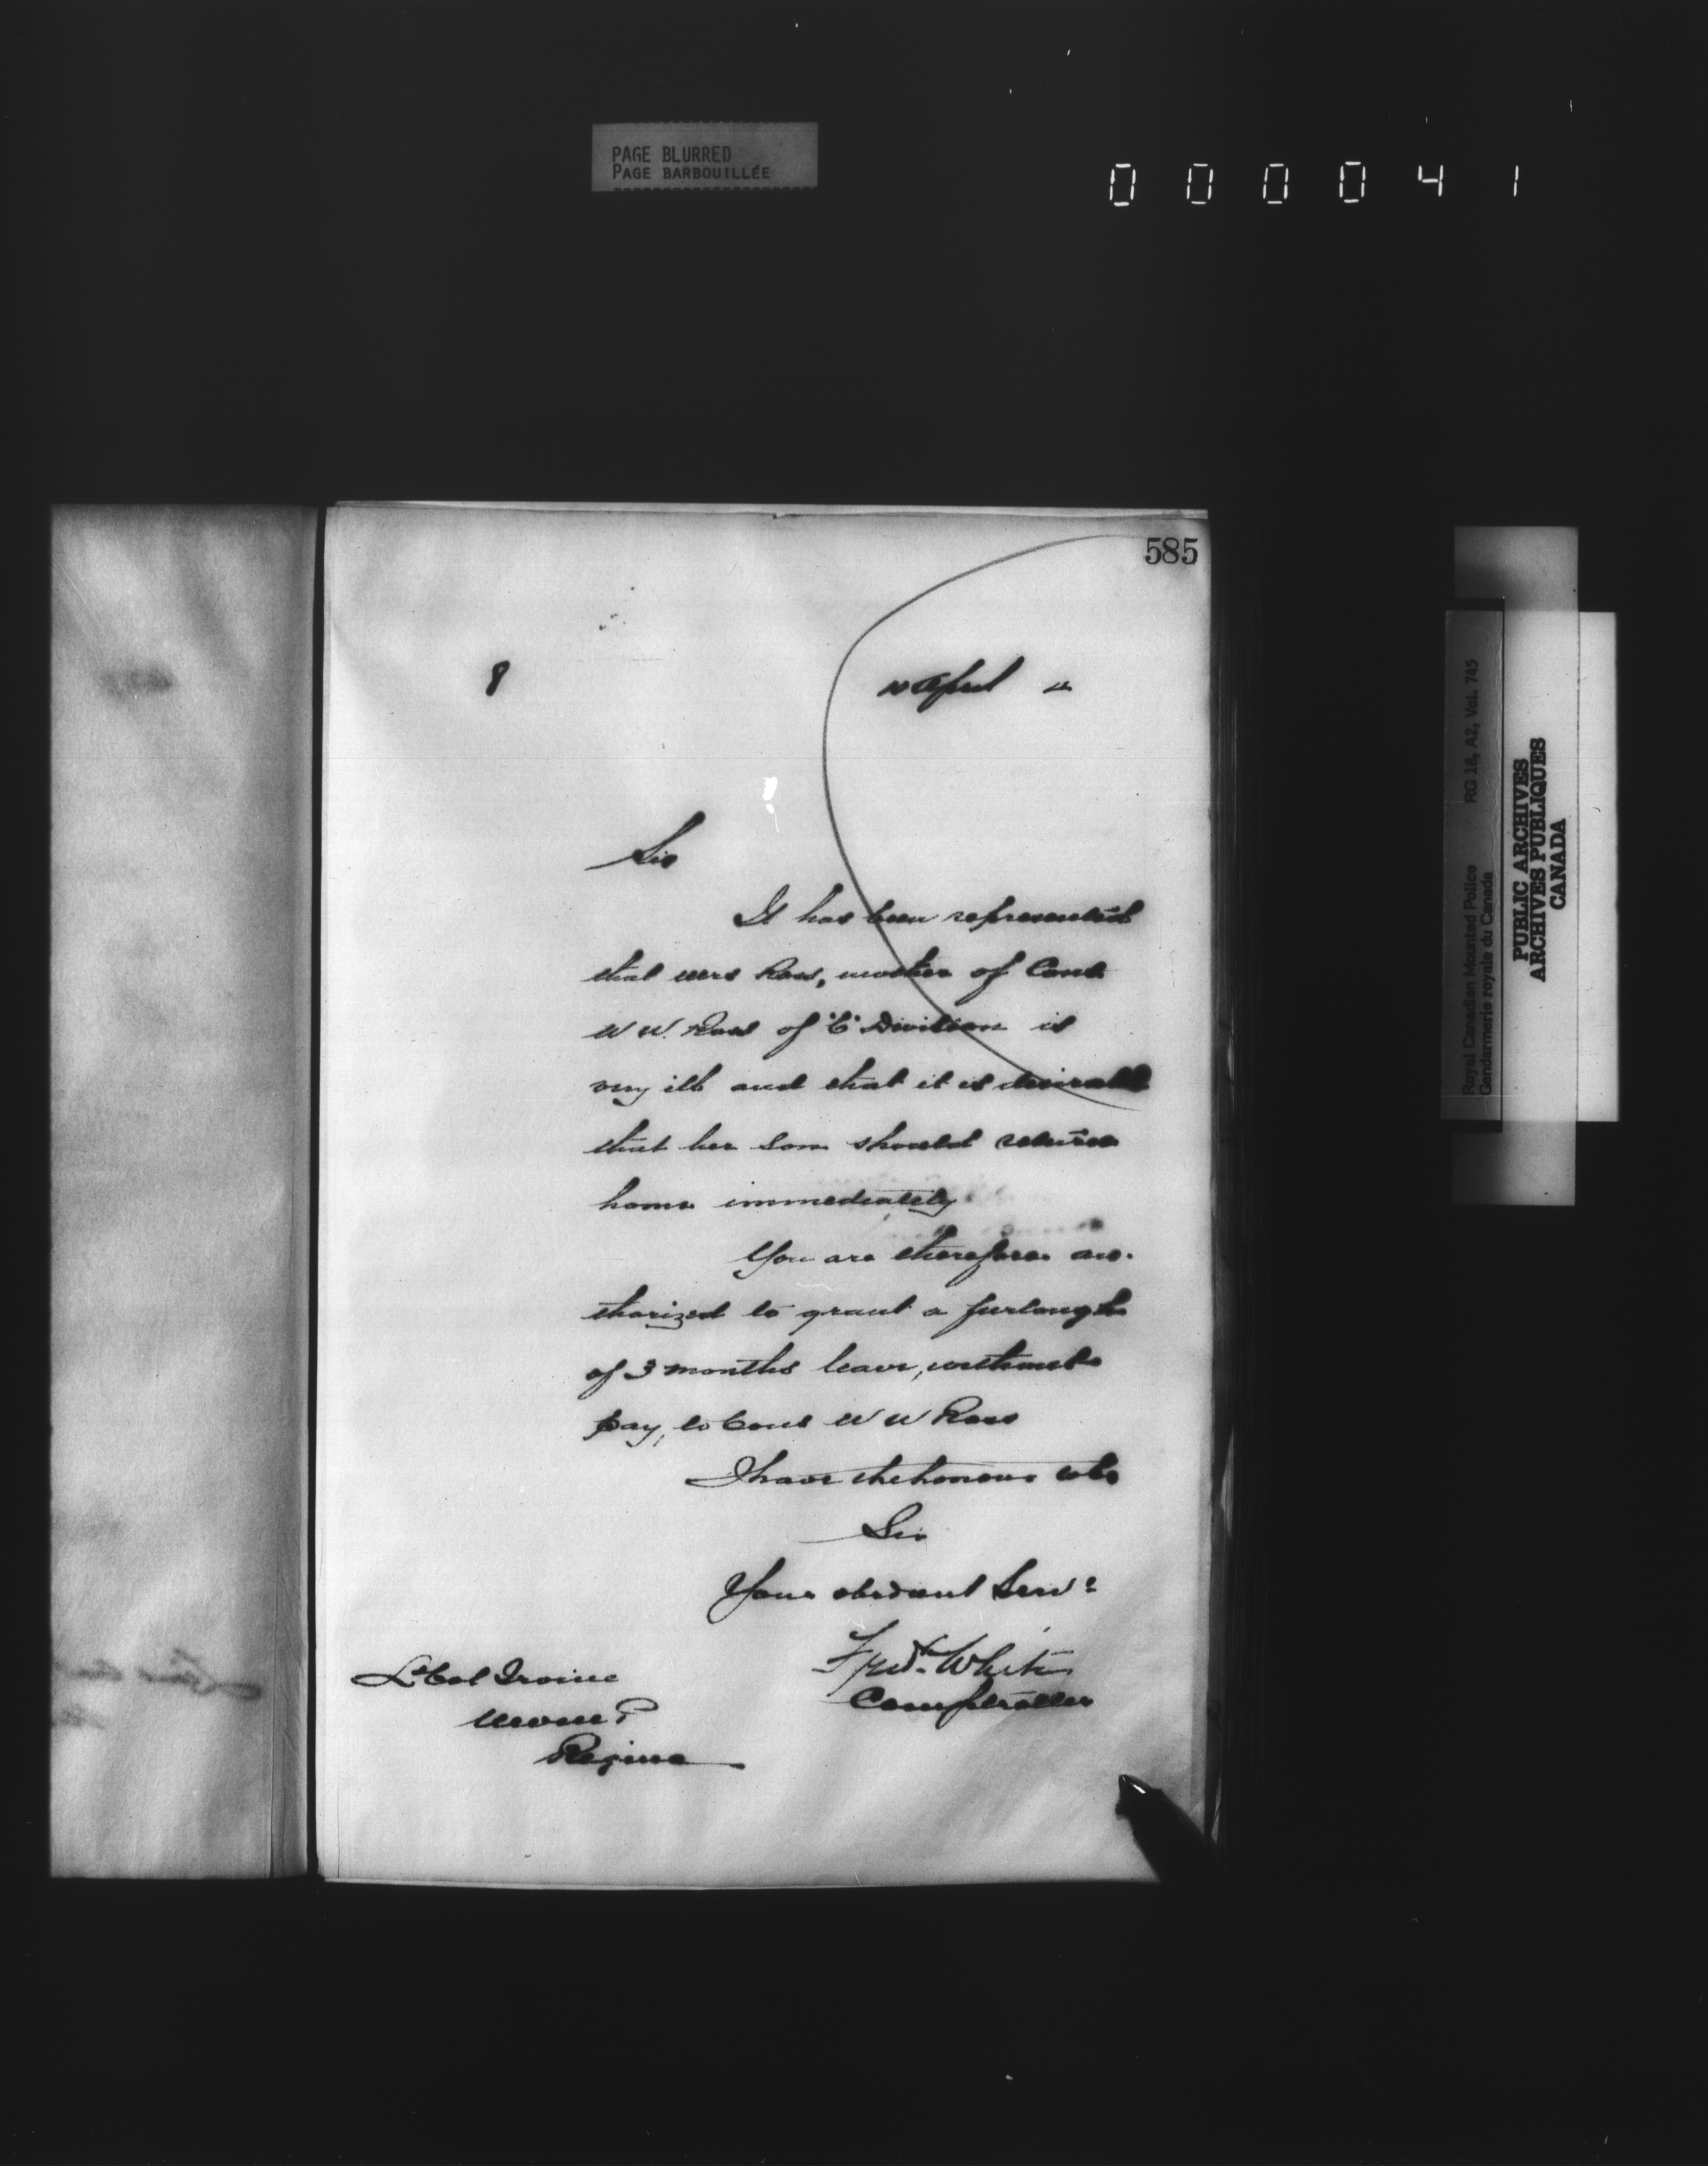 PAGE BLURRED
PAGE BARBOUILLÉE
000041
585
8
10 April
Sir
It has been represented
that Mrs Ross, mother of Cons.
W W. Ross of "C" Division is
very ill and that it is desirable
that her son should return
home immediately
You are therefore au-
thorized to grant a furlough
of 3 months leave, without
pay, to Cons W W Ross
I have the honour to be
Sir
Your obedient Servt
Fred. White
Comptroller
Lt Col Irvine
Regina
Royal Canadian Mounted Police RG 18, A2, Vol. 745
Gendarmerie royale du Canada
PUBLIC ARCHIVES
ARCHIVES PUBLIQUES
CANADA